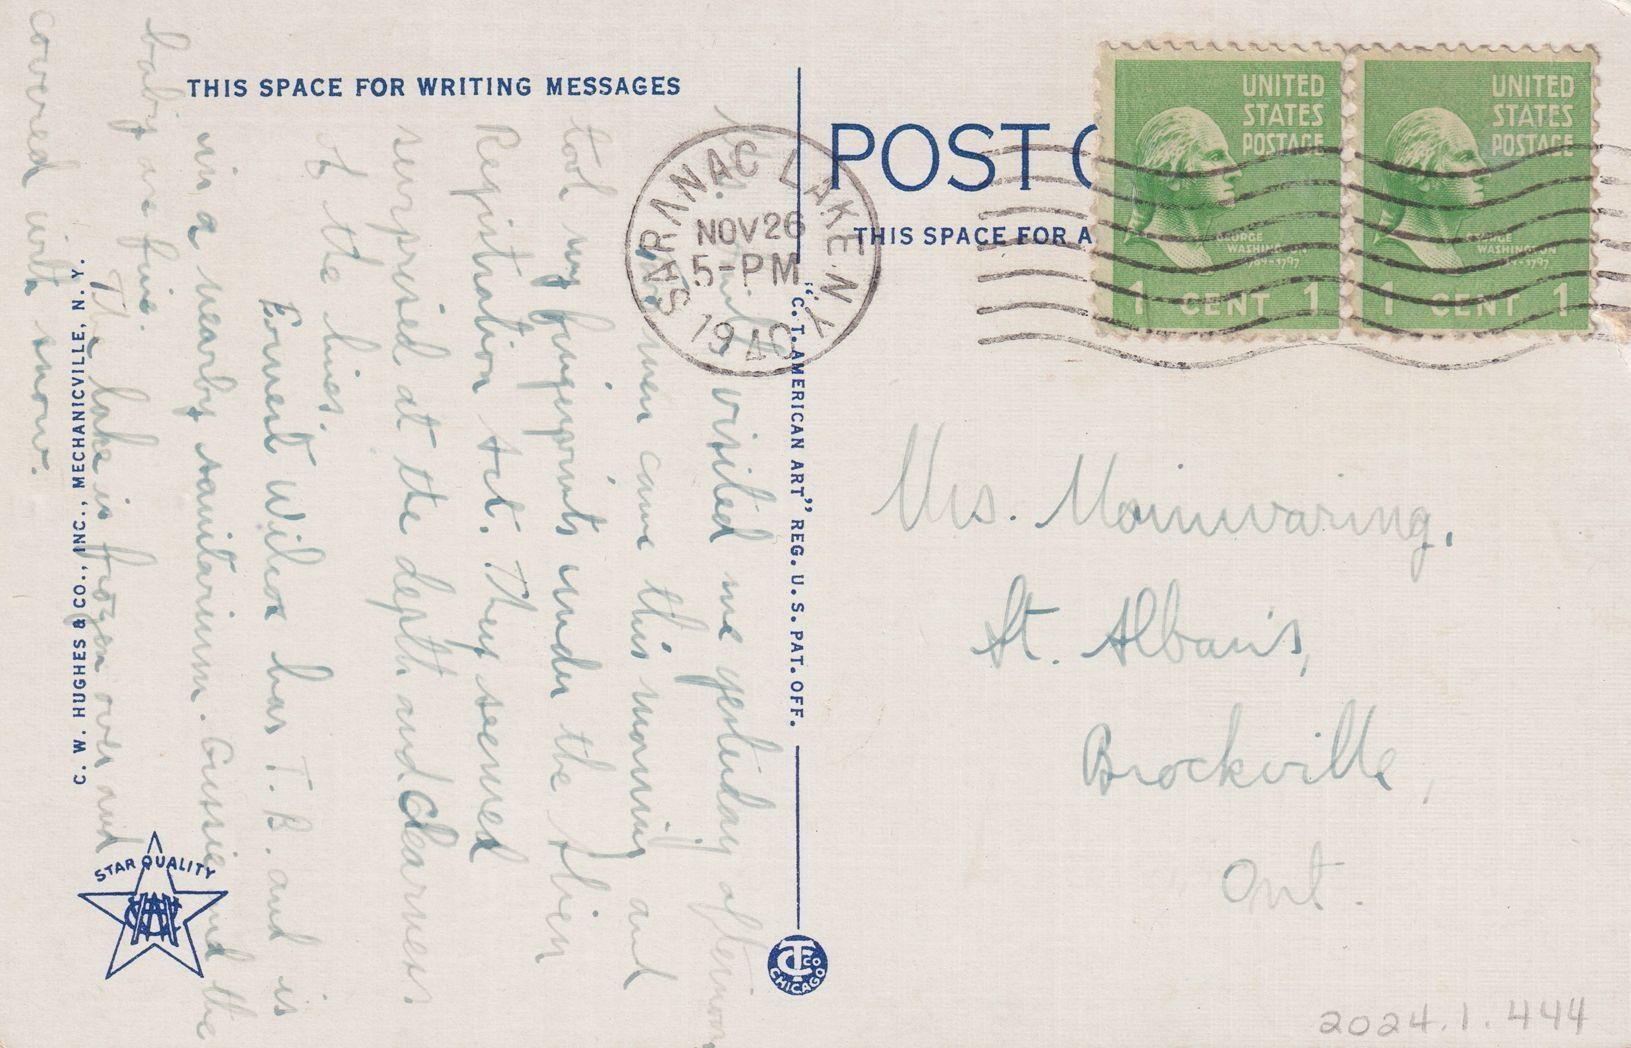 THIS SPACE FOR WRITING MESSAGES
visited me yesterday afternoon
men came this morning and
took my fingerprints under the Alien
Registration Act. They seemed
surprised at the depth and clearness
of the lines.
Ernest Wilcox has T.B. and is
in a nearby sanitarium. Gussie and the
baby are fine.
The lake is frozen over and
covered with snow.
C. W. HUGHES & CO., INC., MECHANICVILLE, N. Y.
STAR QUALITY
SARANAC LAKE N.Y.
NOV 26
5-PM
1940
"C. T. AMERICAN ART" REG. U. S. PAT. OFF.
CT CO
CHICAGO
POST C
THIS SPACE FOR A
UNITED
STATES
POSTAGE
GEORGE
WASHINGTON
1789-1797
1 CENT 1
UNITED
STATES
POSTAGE
GEORGE
WASHINGTON
1789-1797
1 CENT 1
Mrs. Mainwaring,
St. Alban's,
Brockville,
Ont.
2024.1.444